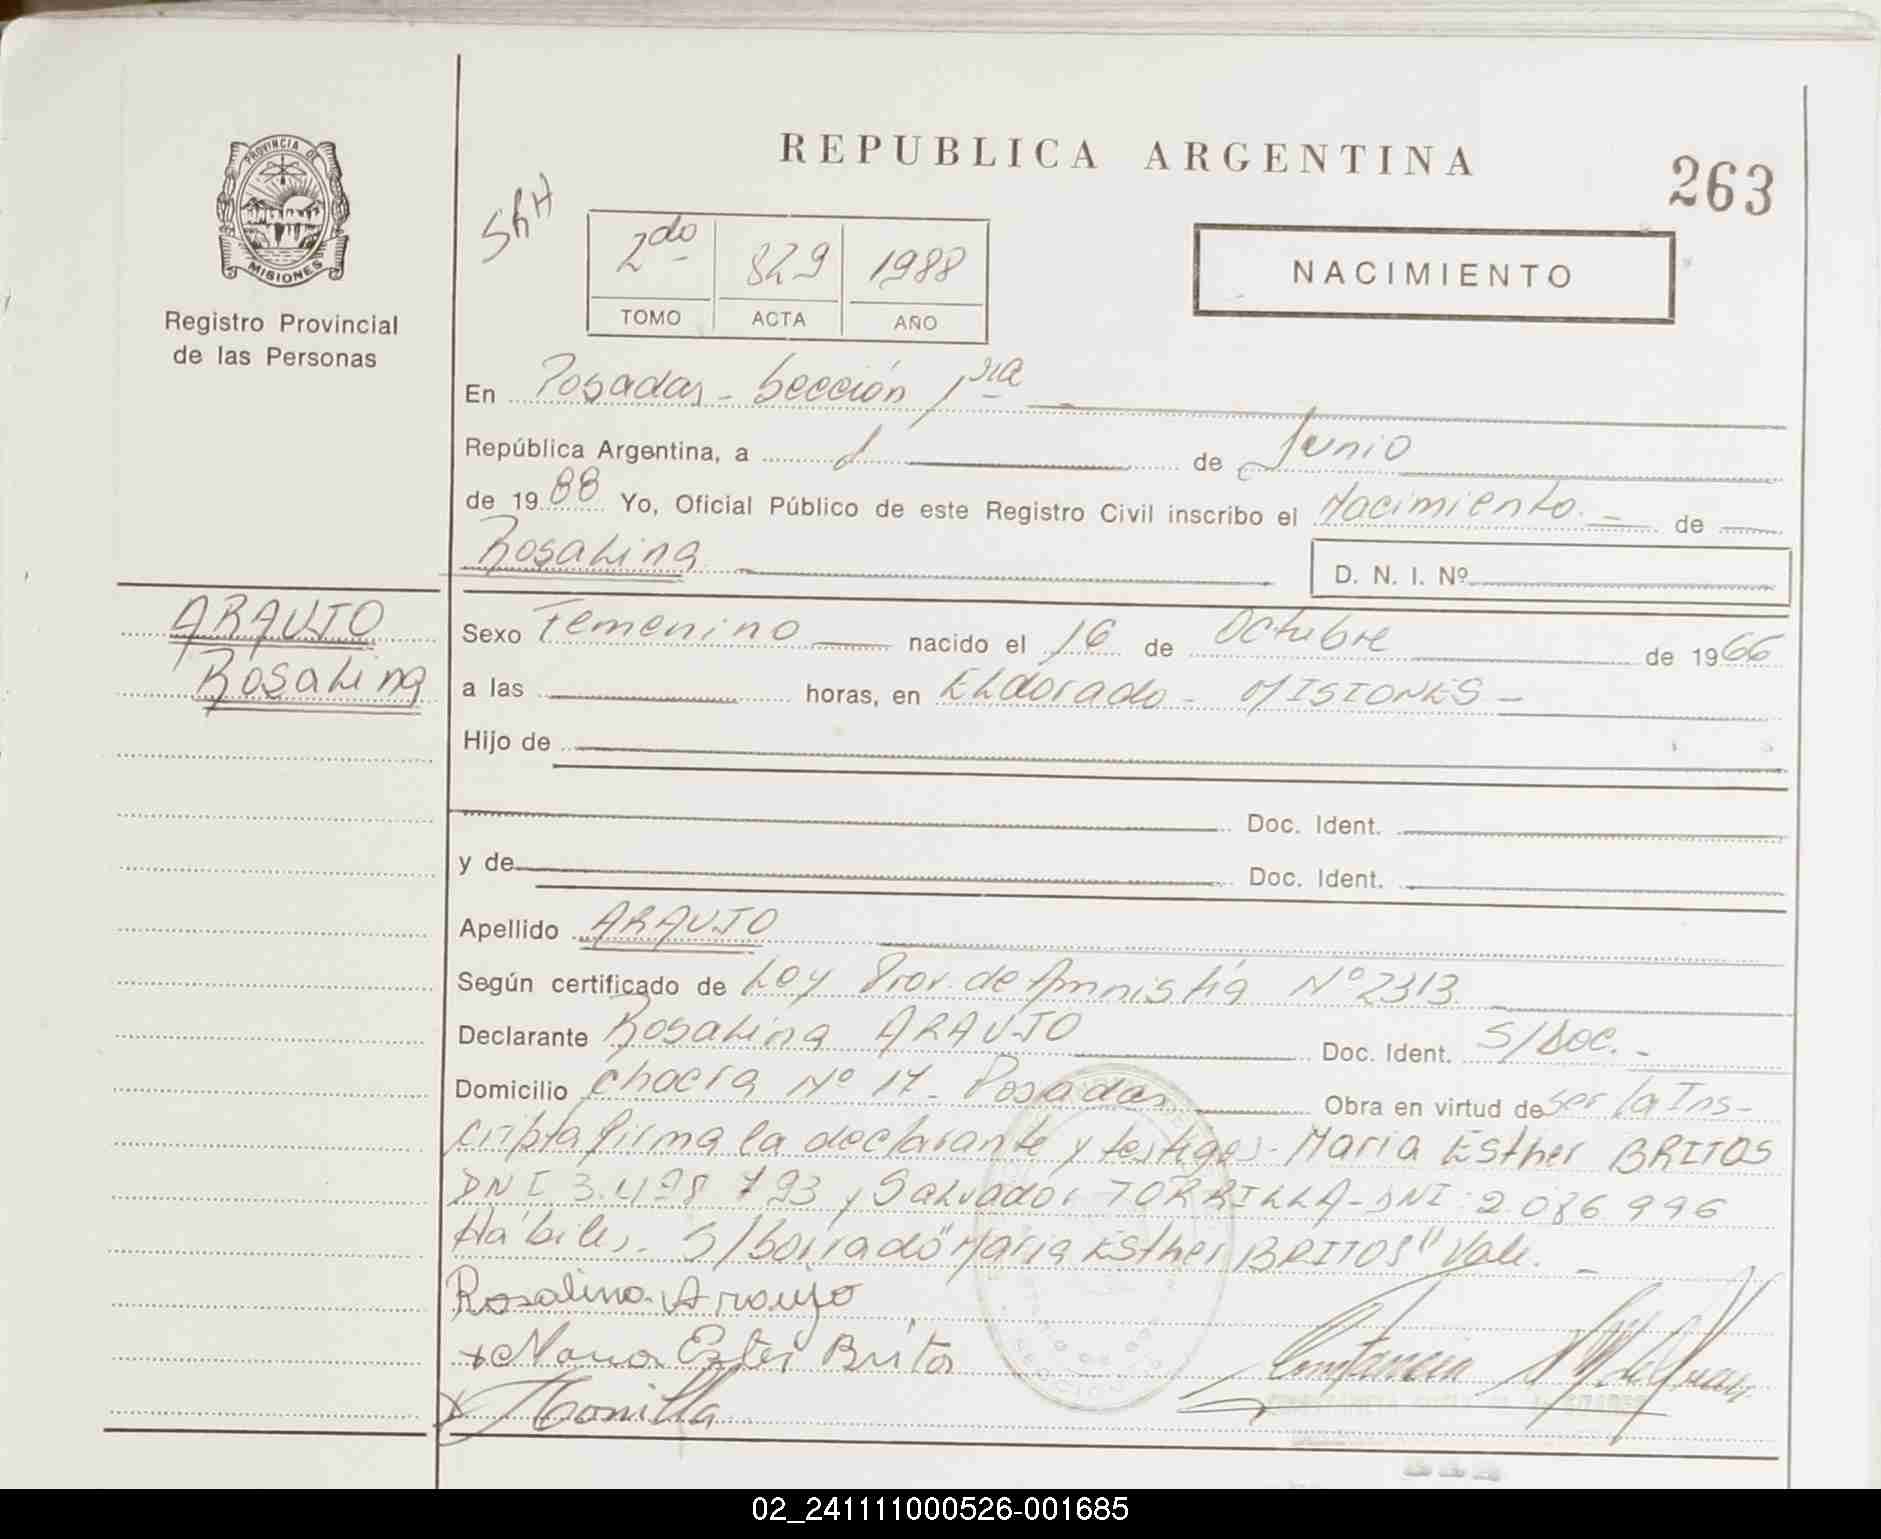 REPUBLICA ARGENTINA
263
PROVINCIA DE
MISIONES
Registro Provincial
de las Personas
2do 829 1988
TOMO ACTA AÑO
NACIMIENTO
En Posadas - Sección 1ra
República Argentina, a 1 de Junio
de 1988 Yo, Oficial Público de este Registro Civil inscribo el Nacimiento. - de
Rosalina
D. N. I. Nº
ARAUJO
Rosalina
Sexo Femenino nacido el 16 de Octubre de 1966
a las horas, en Eldorado - MISIONES -
Hijo de
Doc. Ident.
y de Doc. Ident.
Apellido ARAUJO
Según certificado de Ley Prov. de Amnistía Nº 2313
Declarante Rosalina ARAUJO Doc. Ident. S/Doc. -
Domicilio chacra Nº 17 - Posadas Obra en virtud de ser la Ins-
cripta firma la declarante y testigos - Maria Esther BRITOS
DNI 3.498 793 y Salvador TORRILLA - DNI: 2.086.996
Hábiles. S/borrado "Maria Esther BRITOS" Vale. -
Rosalina Araujo
x Maria Ester Britos
x Torrilla
02_241111000526-001685